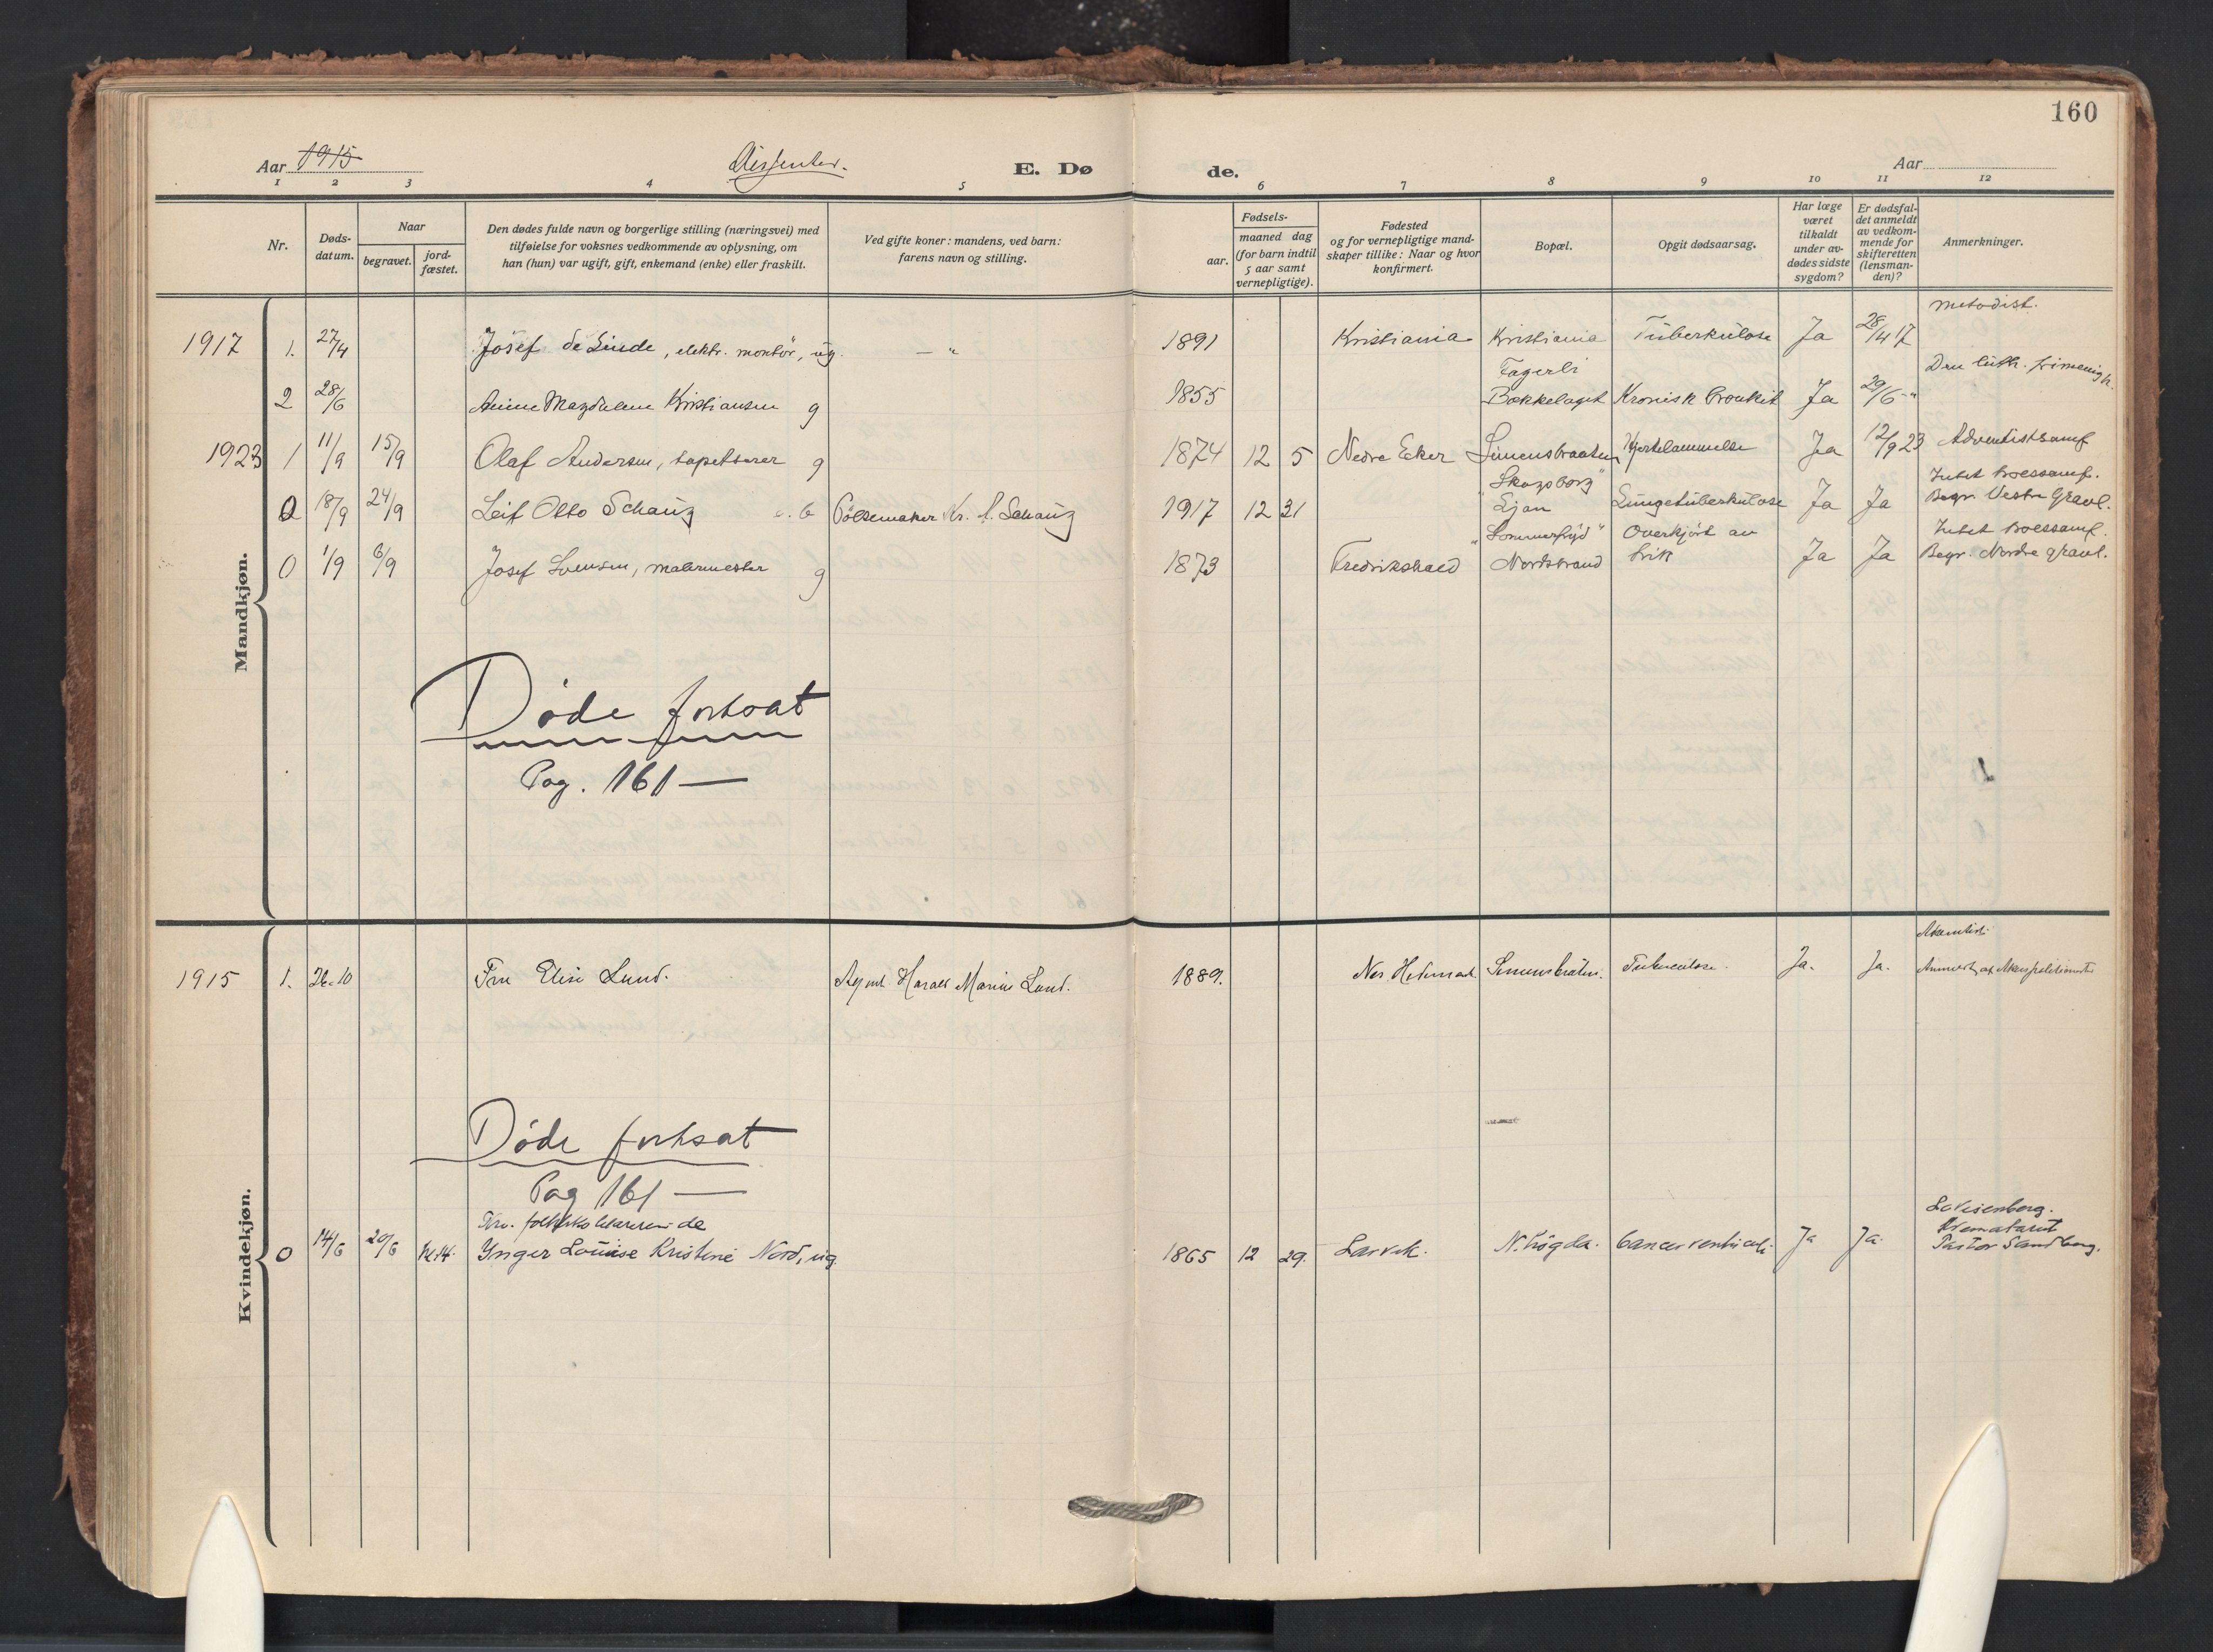 160
Aar 1915 Dissenter. E. Dø de. Aar
1 2 3 4 5 6 7 8 9 10 11 12
Nr.
Døds-datum.
Naar
begravet.
jord-fæstet.
Den dødes fulde navn og borgerlige stilling (næringsvei) med
tilføielse for voksnes vedkommende av oplysning, om
han (hun) var ugift, gift, enkemand (enke) eller fraskilt.
Ved gifte koner: mandens, ved barn:
farens navn og stilling.
Fødsels-
aar.
maaned dag
(for barn indtil
5 aar samt
vernepligtige).
Fødested
og for vernepligtige mand-
skaper tillike: Naar og hvor
konfirmert.
Bopæl.
Opgit dødsaarsag.
Har læge
været
tilkaldt
under av-
dødes sidste
sygdom?
Er dødsfal-
det anmeldt
av vedkom-
mende for
skifteretten
(lensman-
den)?
Anmerkninger.
Mandkjøn.
1917 1. 27/4 Josef de Linde, elektr. montör, ug. — " 1891 Kristiania Kristiania Tuberkulose Ja 28/4 17 Metodist.
2 28/6 Anne Magdalene Kristiansen g 1855 Fagerli Bækkelaget Kronisk bronkit Ja 29/6 -" Den luth. frimenigh.
1923 1 11/9 15/9 Olaf Andersen, tapetserer g 1874 12 5 Nedre Eeker Simensbraaten Hjertelammelse Ja 12/9 23 Adventistsamf
2 18/9 24/9 Leif Otto Schau u. b Pölsemaker Kr. 1917 12 31 "Skogsborg" Ljan Lungetuberkulose Ja Ja Intet troessamf. Begr. Vestre Gravl.
0 1/9 6/9 Josef Svensen, malermester g 1873 Fredrikshald "Sommerfryd" Nordstrand Overkjört av trik Ja Ja Intet troessamf. Begr. Nordre gravl.
Døde fortsat
Pag. 161 —
Kvindekjøn.
1915 1. De. 10 Fru Elise Lund. Agent Harald Marius Lund. 1889. Nes Hedemark. Simensbråten. Tuberculose. Ja. Ja.
Døde fortsat
Pag 161 —
0 14/6 20/6 Frv. folkskolelærerinde
Ynger Louise Kristine Nord, ug. 1865 12 29. Larvik. N. högda. Cancer ventriculi. Ja Ja. Lovisenberg.
Krematoriet
Pastor Sandberg.